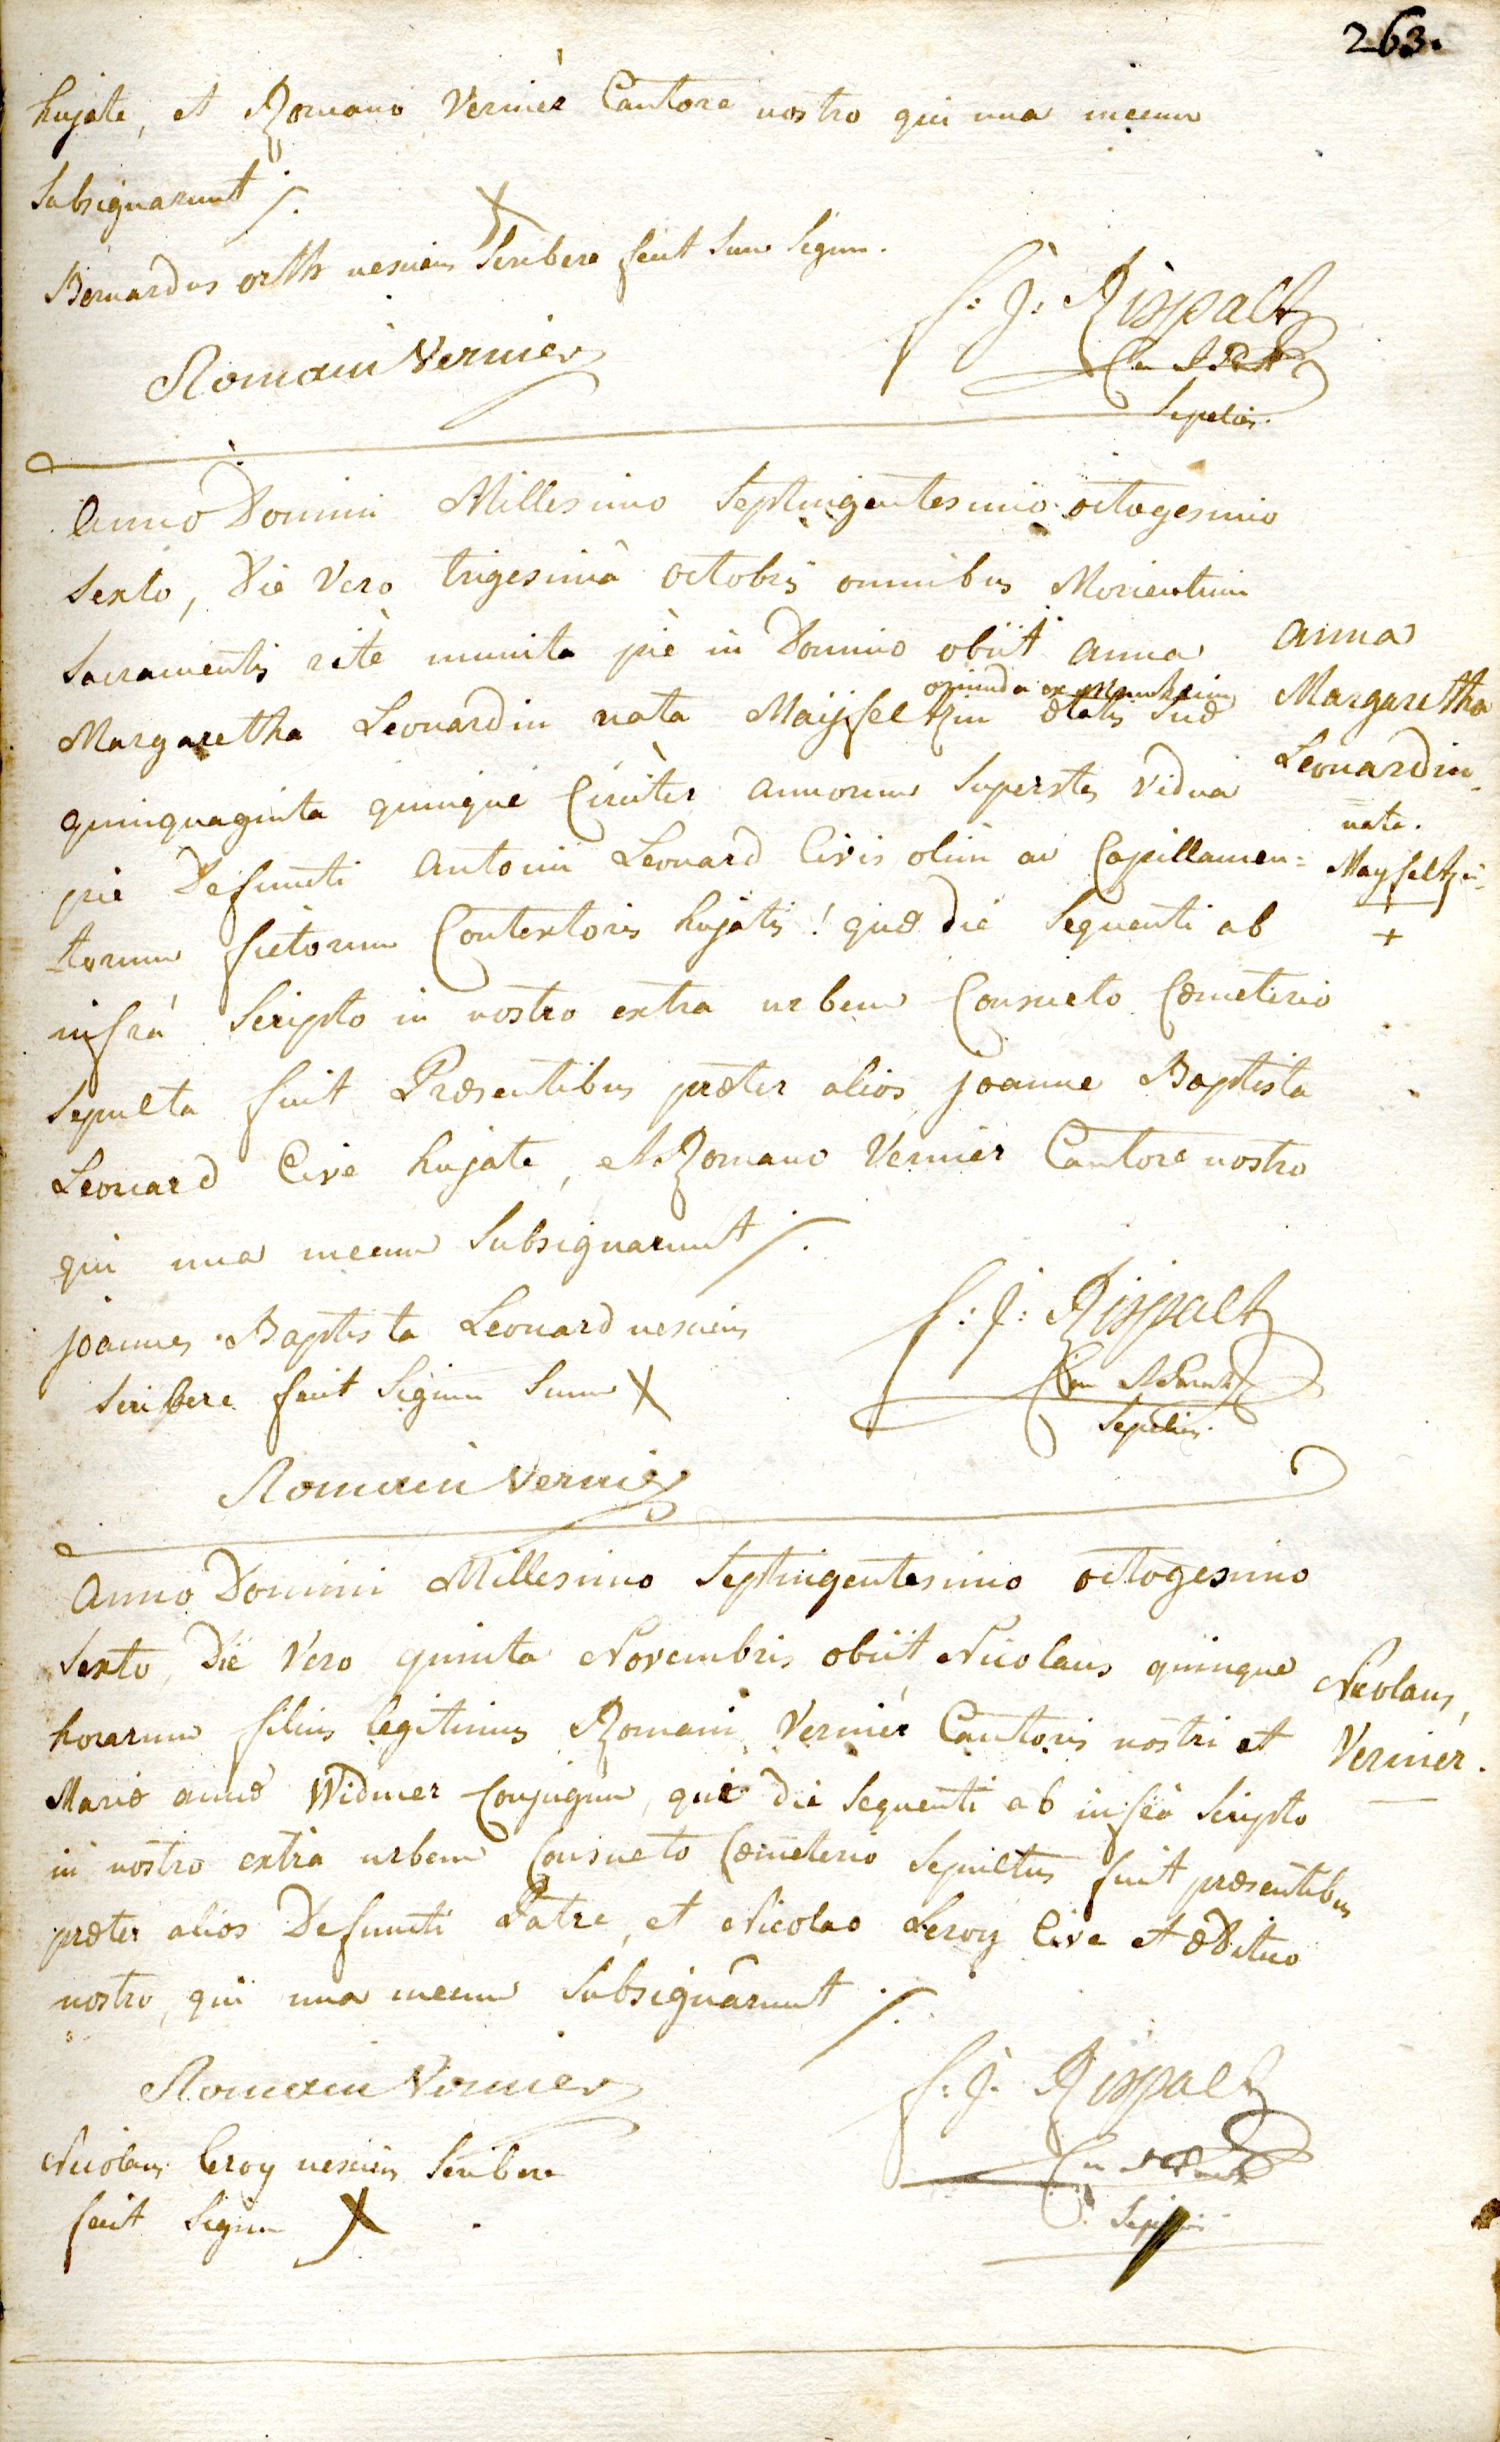 263.
hujate, et Romano Vernièr Cantore nostro qui una mecum
Subsignarunt ./.
Bernardus orth nesciens Scribere fecit Suum Signum. X
Romain Vernier
f: j: Rispalt
Can. Reg.
Sepeliens.
Anno Domini Millesimo Septingentesimo octogesimo
Sexto, Die Vero trigesimâ octobris omnibus Morientium
Sacramentis ritè munita piè in Domino obiit Anna
oriunda ex Manheim
Margaretha Leonardin nata Maijfeltzin ætatis Suæ
quinquaginta quinque Circitèr annorum Superstes Vidua
piè Defuncti Antonii Leonard Civis olim ac Capillamen=
torum fictorum Contextoris hujatis ! quæ die Sequenti ab
infrà Scripto in nostro extra urbem Consueto Cœmeterio
Sepulta fuit Præsentibus præter alios joanne Baptista
Leonard Cive hujate, et Romano Vernier Cantore nostro
qui una mecum Subsignarunt ./.
Anna
Margaretha
Leonardin
nata.
Mayfeltzin
+
joannes Baptista Leonard nesciens
Scribere fecit Signum Suum X
Romain Vernier
f: j: Rispalt
Can.
Sepeliens.
Anno Domini Millesimo Septingentesimo octogesimo
Sexto, Die Vero quinta Novembris obiit Nicolaus quinque
horarum filius legitimus Romani Verniér Cantoris nostri et
Mariæ annæ Widmer Conjugum, qui die Sequenti ab infrà Scripto
in nostro extra urbem Consueto Cœmeterio Sepultus fuit præsentibus
præter alios Defuncti Patre, et Nicolao Leroy Cive et ædituo
nostro, qui una mecum Subsignârunt ./.
Nicolaus
Vernier.
Romain Vernier
Nicolaus leroy nesciens Scribere
fecit Signum X
f: j. Rispalt
Can.
Sepeliens